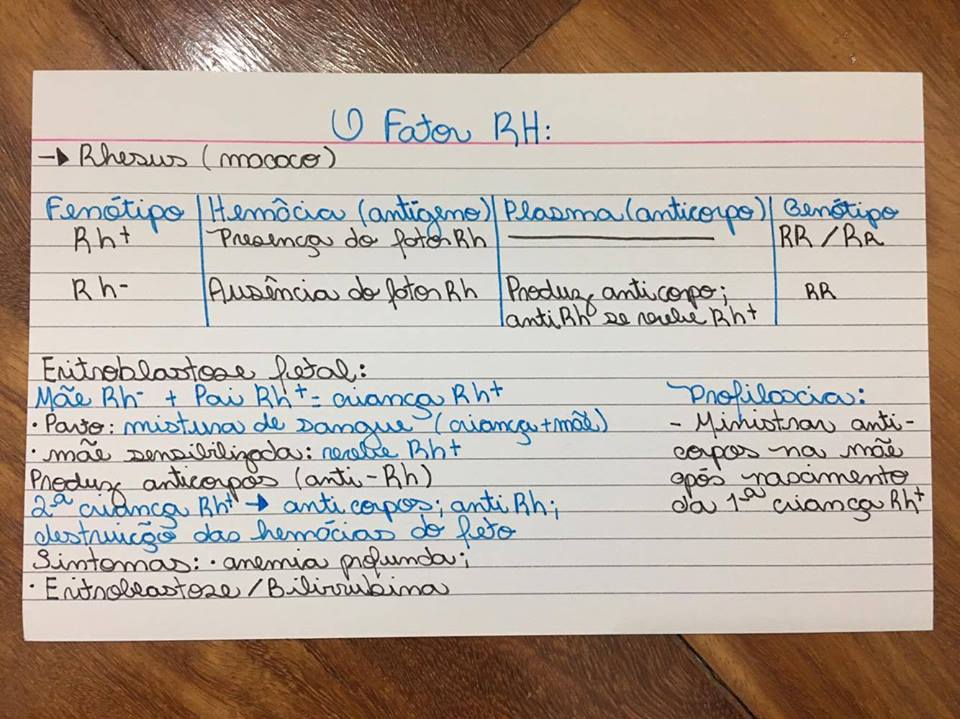 1) Fator RH:
→ Rhesus (macaco)
Fenótipo | Hemácia (antígeno) | Plasma (anticorpo) | Genótipo
Rh+ | Presença do fator Rh | ——— | RR / Rr
Rh- | Ausência do fator Rh | Produz anticorpo; | RR
antiRh se recebe Rh+
Eritroblastose fetal:
Mãe Rh- + Pai Rh+ = criança Rh+
• Parto: mistura de sangue (criança + mãe)
• mãe sensibilizada: recebe Rh+
Produz anticorpos (anti-Rh)
2ª criança Rh+ → anticorpos; anti Rh;
destruição das hemácias do feto
Sintomas: • anemia profunda;
• Eritroblastose / Bilirrubina
Profilaxia:
- Ministrar anti-
corpos na mãe
após nascimento
da 1ª criança Rh+